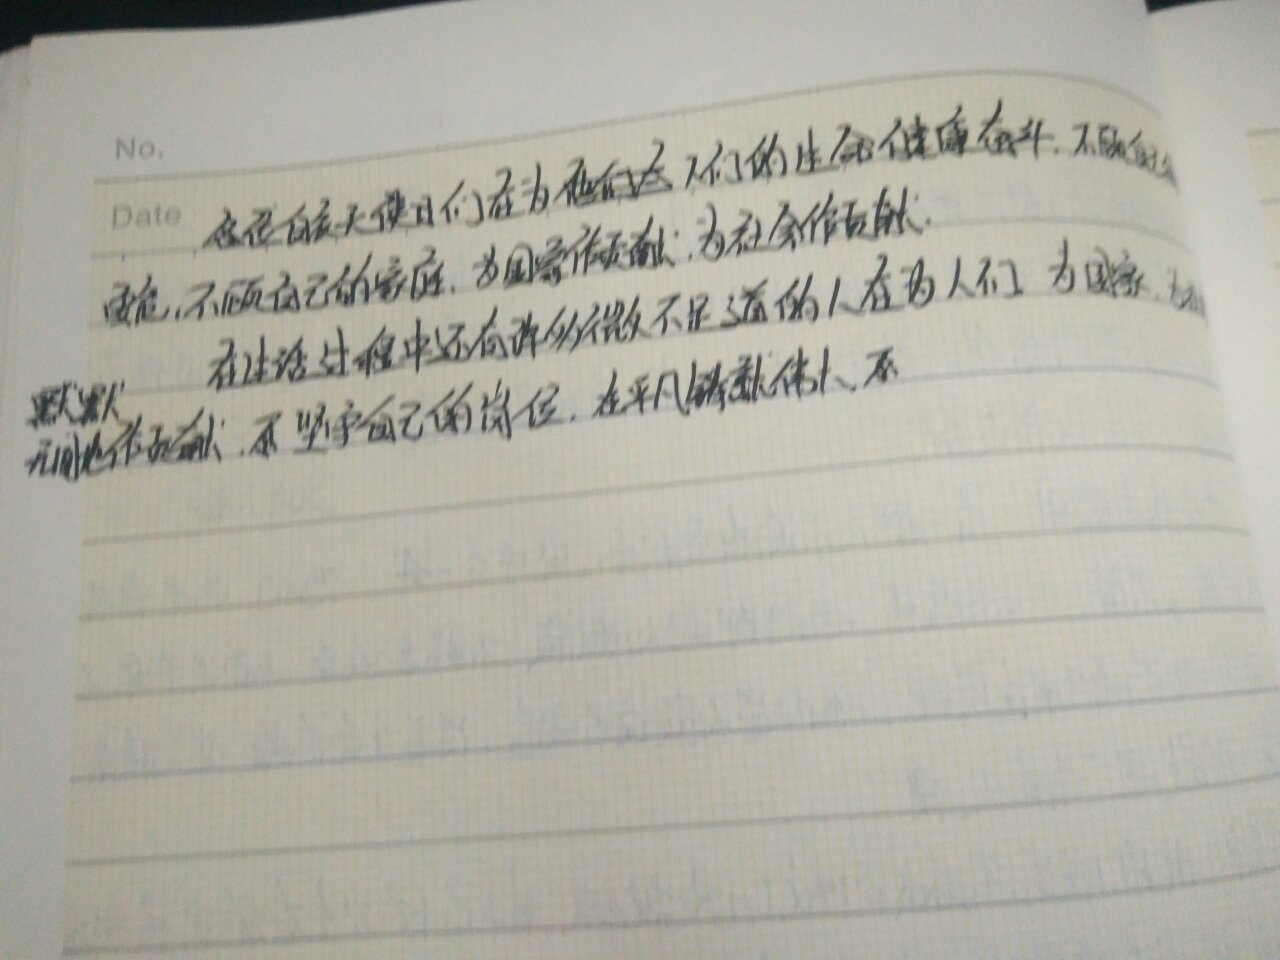 No.
Date 这些白衣天使们在为人们的生命健康奋斗、不顾自己
安危,不顾自己的家庭、为国家作贡献,为社会作贡献.
在生活过程中还有许多微不足道的人在为人们 为国家、为
默默
无闻地作贡献、坚守自己的岗位、在平凡铸就伟大、不